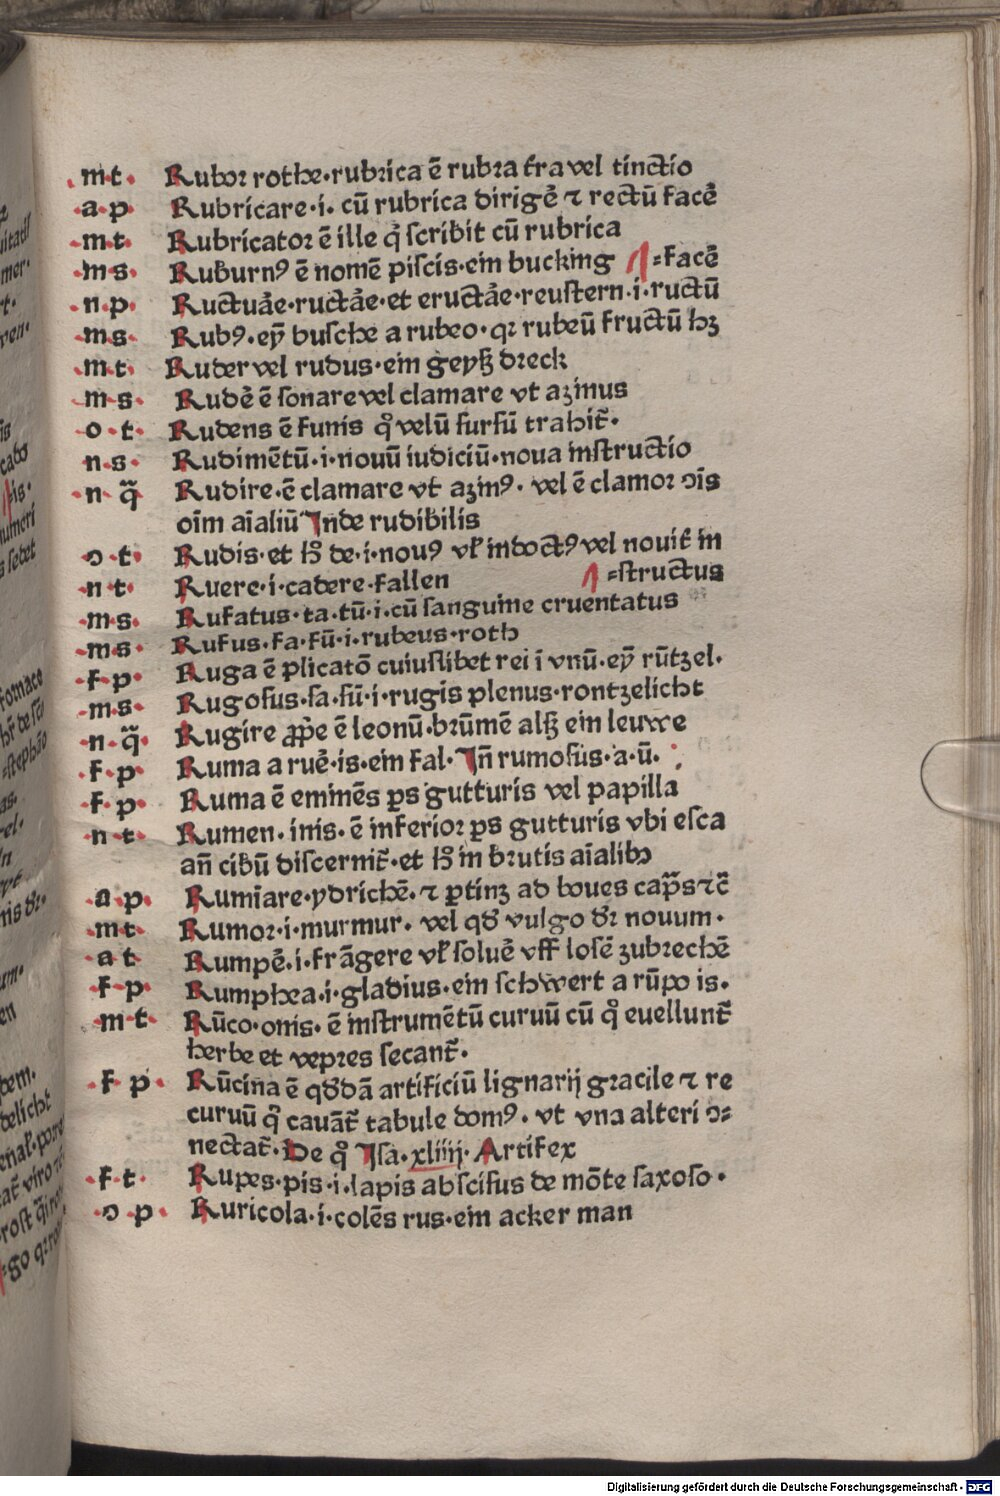 m·t· Rubor rothe·rubrica ē rubra t̄ra vel tinctio
·a·p· Rubricare·i· cū rubrica dirigē ⁊ rectū facē
·m·t· Rubricator ē ille q̇ ſcribit cū rubrica
·m·s· Ruburnꝰ ē nomē piſcis·ein bucking =facē
·n·p· Ructuāe·ructāe·et eructāe·reuſtern·i·ructū
·m·s· Rubꝰ·eȳ buſche a rubeo·qꝛ rubeū fructū hꝫ
·m·t· Ruder vel rudus·ein geyſz dreck
·m·s· Rudē ē ſonare vel clamare vt azinus
·o·t· Rudens ē funis q̊ velū ſurſū trahit̄·
n·s· Rudimētū·i·nouū iudiciū·noua inſtructio
·n·q̄̃ Rudire·ē clamare vt azinꝰ· vel ē clamor ↄīs
oīm aīaliū Inde rudibilis
ↄ·t· Rudis·et h̊ de·i·nouꝰ vl̄ indoctꝰ vel nouit̄ in
n·t· Ruere·i·cadere·fallen =ſtructus
·m·s· Rufatus·ta·tū·i·cū ſanguine cruentatus
·m·s· Rufus·fa·fū·i·rubeus·roth
·f·p· Ruga ē plicatō cuiuſlibet rei ī vnū·eȳ rūtzel·
·m·s· Rugoſus·ſa·ſū·i·rugis plenus·rontzelicht
·n·q̄̃· Rugire ꝓp̄e ē leonū·brūmē alſz ein leuwe
·f·p· Ruma a ruē·is·ein fal·Iñ rumoſus·a·ū·
·f·p· Ruma ē eminēs ꝑs gutturis vel papilla
·n·t· Rumen·inis·ē inferior ꝑs gutturis vbi eſca
añ cibū diſcernit̄·et h̊ in brutis aīalibꝫ
·a·p· Rumīare·ydrichē·⁊ ꝑtinꝫ ad boues cap̄s ⁊c̄
·m·t· Rumor·i·murmur· vel qđ vulgo dr̄ nouum·
·a t· Rumpē·i·frāgere vl̄ ſoluē vff loſē zubrechē
·f·p· Rumphea·i·gladius·ein ſchwert a rūpo is·
·m·t· Rūco·onis· ē inſtrumētū curuū cū q̊ euellunt̄
herbe et vepres ſecant̄·
·f·p· Rūcina ē qđdā artificiū lignarij gracile ⁊ re
curuū q̊ cauāt̄ tabule domꝰ· vt vna alteri ↄ=
nectat̄·De q̊ Iſa·xliiij·Artifex
·f·t· Rupes·pis·i·lapis abſciſus de mōte ſaxoſo·
·ↄ·p· Ruricola·i·colēs rus·ein acker man
Digitalisierung gefördert durch die Deutsche Forschungsgemeinschaft - DFG